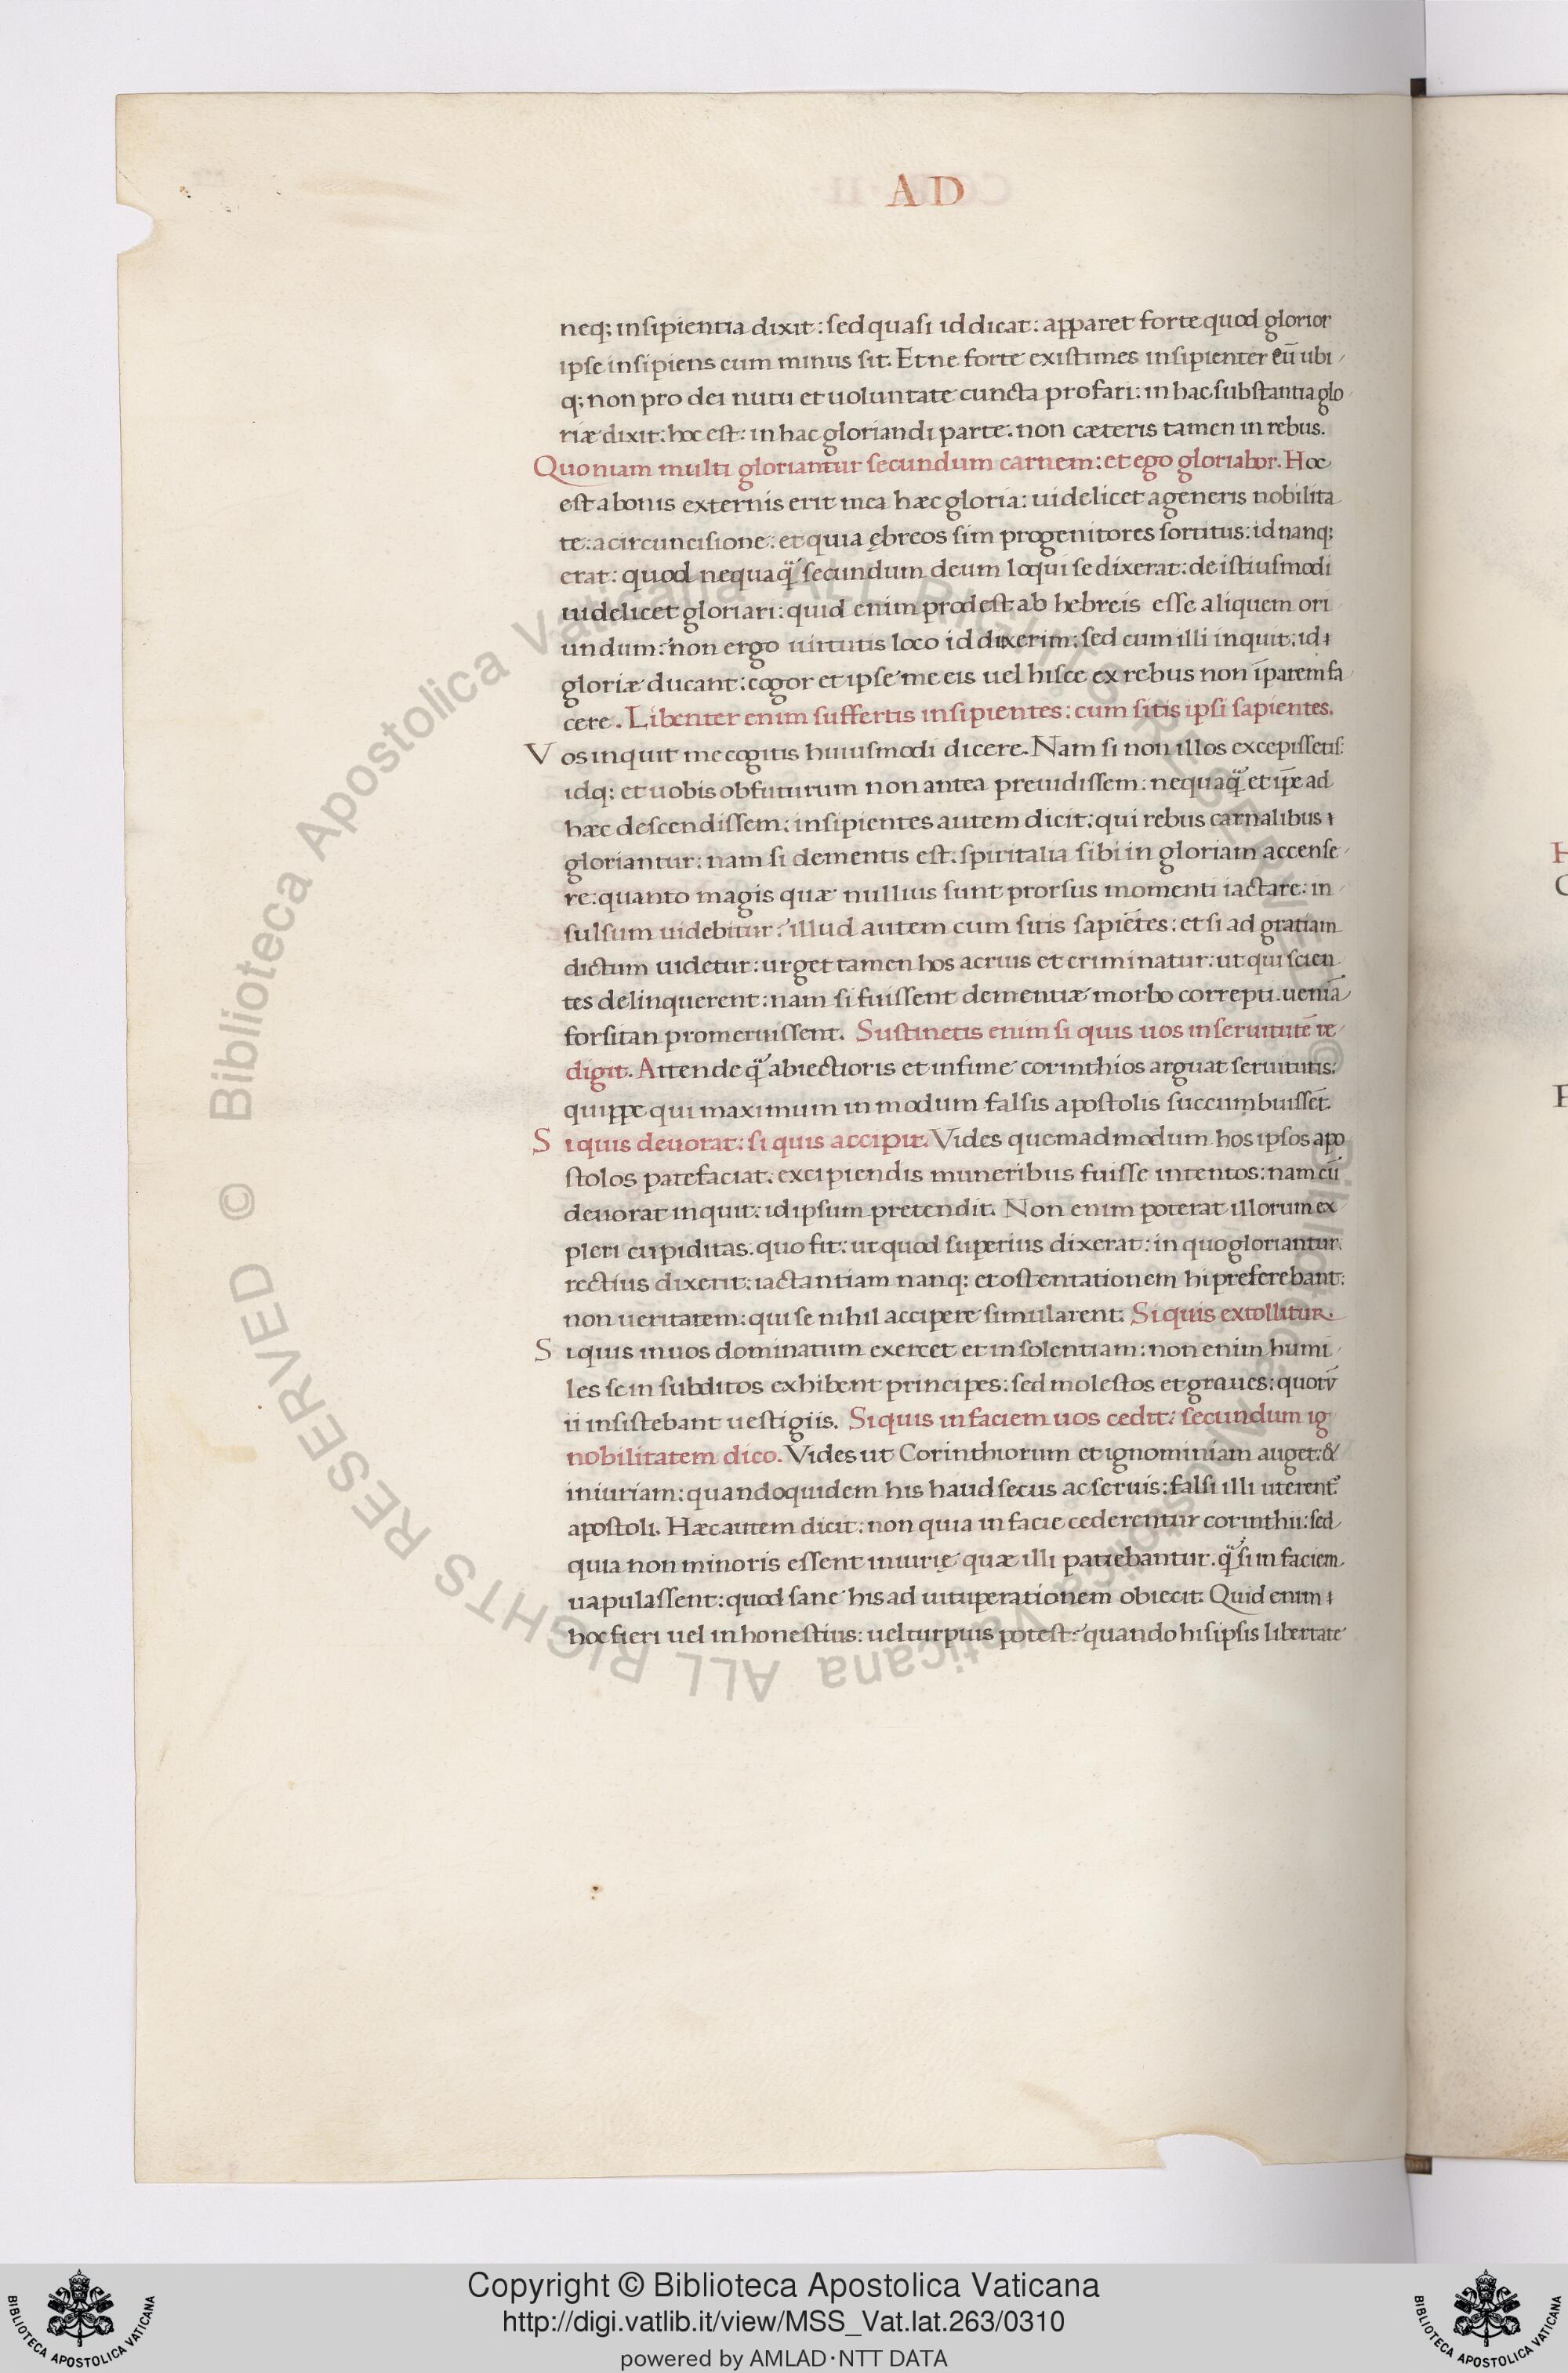 AD
neq; insipientia dixit: sed quasi id dicat: apparet forte quod glorior
ipse insipiens cum minus sit. Et ne forte existimes insipienter eū ubi
q; non pro dei nutu et uoluntate cuncta profari: in hac substantia glo
riæ dixit: hoc est: in hac gloriandi parte: non cæteris tamen in rebus.
Quoniam multi gloriantur secundum carnem: et ego gloriabor. Hoc
est a bonis externis erit mea hæc gloria: uidelicet a generis nobilita
te: a circuncisione: et quia ębreos sim progenitores sortitus: id nanq;
erat: quod nequaq̃ secundum deum loqui se dixerat: de istiusmodi
uidelicet gloriari: quid enim prodest ab hebreis esse aliquem ori
undum: non ergo uirtutis loco id dixerim: sed cum illi inquit: id
gloriæ ducant: cogor et ipse me eis uel hisce ex rebus non īparem fa
cere. Libenter enim suffertis insipientes: cum sitis ipsi sapientes.
Vos inquit me cogitis huiusmodi dicere. Nam si non illos excepissetis:
idq: et uobis obfuturum non antea preuidissem: nequaq̃ et ip̄e ad
hæc descendissem: insipientes autem dicit: qui rebus carnalibus
gloriantur: nam si dementis est. spiritalia sibi in gloriam accense
re: quanto magis quæ nullius sunt prorsus momenti iactare: in
sulsum uidebitur: illud autem cum sitis sapiētes: et si ad gratiam
dictum uidetur: urget tamen hos acrius et criminatur: ut qui scien
tes delinquerent: nam si fuissent dementiæ morbo correpti. ueniā
forsitan promeruissent. Sustinetis enim si quis uos in seruitutē re
digit. Attende q̃ abiectioris et infime corinthios arguat seruitutis:
quippe qui maximum in modum falsis apostolis succumbuissēt.
Si quis deuorat: si quis accipit. Vides quemadmodum hos ipsos apo
stolos patefaciat. excipiendis muneribus fuisse intentos: nam cū
deuorat inquit: id ipsum pretendit. Non enim poterat illorum ex
pleri cupiditas. quo fit: ut quod superius dixerat: in quo gloriantur.
rectius dixerit: iactantiam nanq: et ostentationem hi preferebant:
non ueritatem: qui se nihil accipere simularent. Si quis extollitur.
Si quis in uos dominatum exercet et insolentiam: non enim humi
les se in subditos exhibent principes: sed molestos et graues: quorū
ii insistebant uestigiis. Si quis in faciem uos cedit: secundum ig
nobilitatem dico. Vides ut Corinthiorum et ignominiam auget: &
iniuriam: quandoquidem his haud secus ac seruis: falsi illi uterent᷑
apostoli. Hæc autem dicit: non quia in facie cederentur corinthii: sed
quia non minoris essent iniurię quæ illi patiebantur. q̃ si in faciem
uapulassent: quod sane his ad uituperationem obiecit. Quid enim
hoc fieri uel inhonestius: uel turpius potest: quando his ipsis libertate
© Biblioteca Apostolica Vaticana ALL RIGHTS RESERVED © Biblioteca Apostolica Vaticana ALL RIGHTS RESERVED
Copyright © Biblioteca Apostolica Vaticana
http://digi.vatlib.it/view/MSS_Vat.lat.263/0310
powered by AMLAD·NTT DATA
BIBLIOTECA APOSTOLICA VATICANA
BIBLIOTECA APOSTOLICA VATICANA